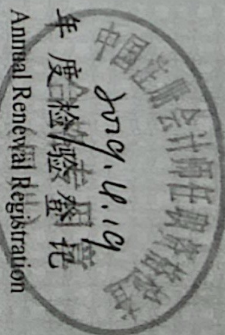 中国注册会计师任职资格检
2019.4.19
年度检验登记
Annual Renewal Registration